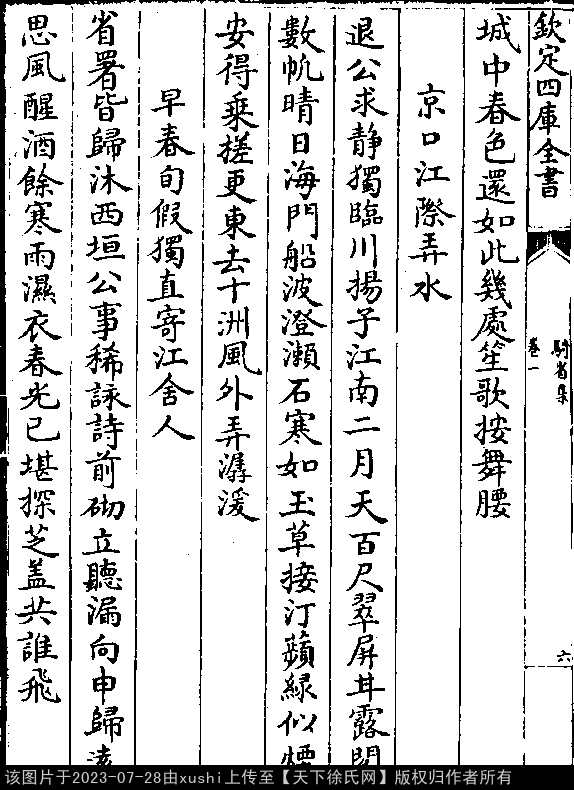 欽定四庫全書
騎省集
卷一
六
城中春色還如此幾處笙歌按舞腰
京口江際弄水
退公求静獨臨川揚子江南二月天百尺翠屏甘露閣
數帆晴日海門船波澄瀬石寒如玉草接汀蘋緑似煙
安得乗槎更東去十洲風外弄潺湲
早春旬假獨直寄江舍人
省署皆歸沐西垣公事稀詠詩前砌立聽漏向申歸遠
思風醒酒餘寒雨濕衣春光已堪探芝盖共誰飛
该图片于2023-07-28由xushi上传至【天下徐氏网】版权归作者所有